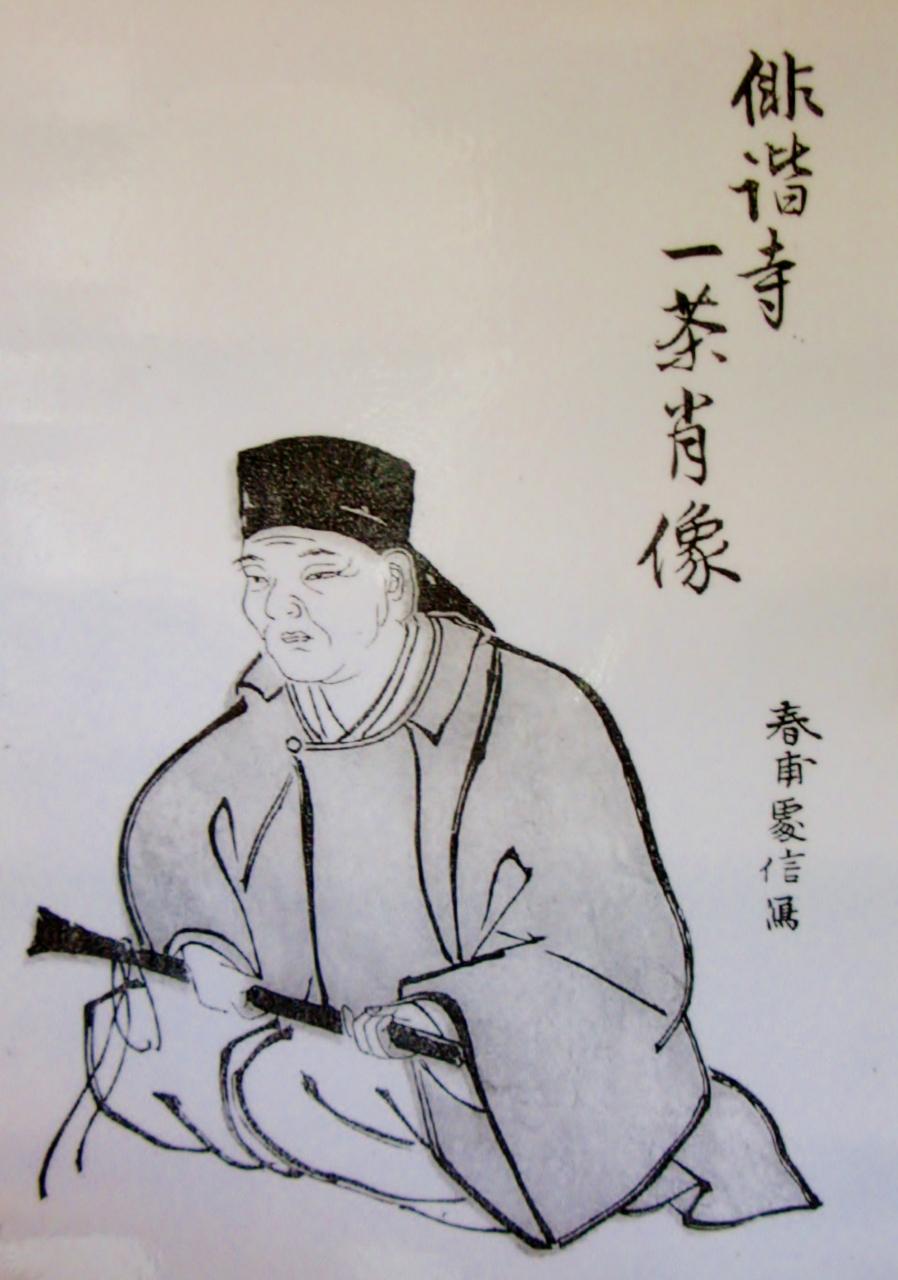 俳諧寺
一茶肖像
春甫慶信冩